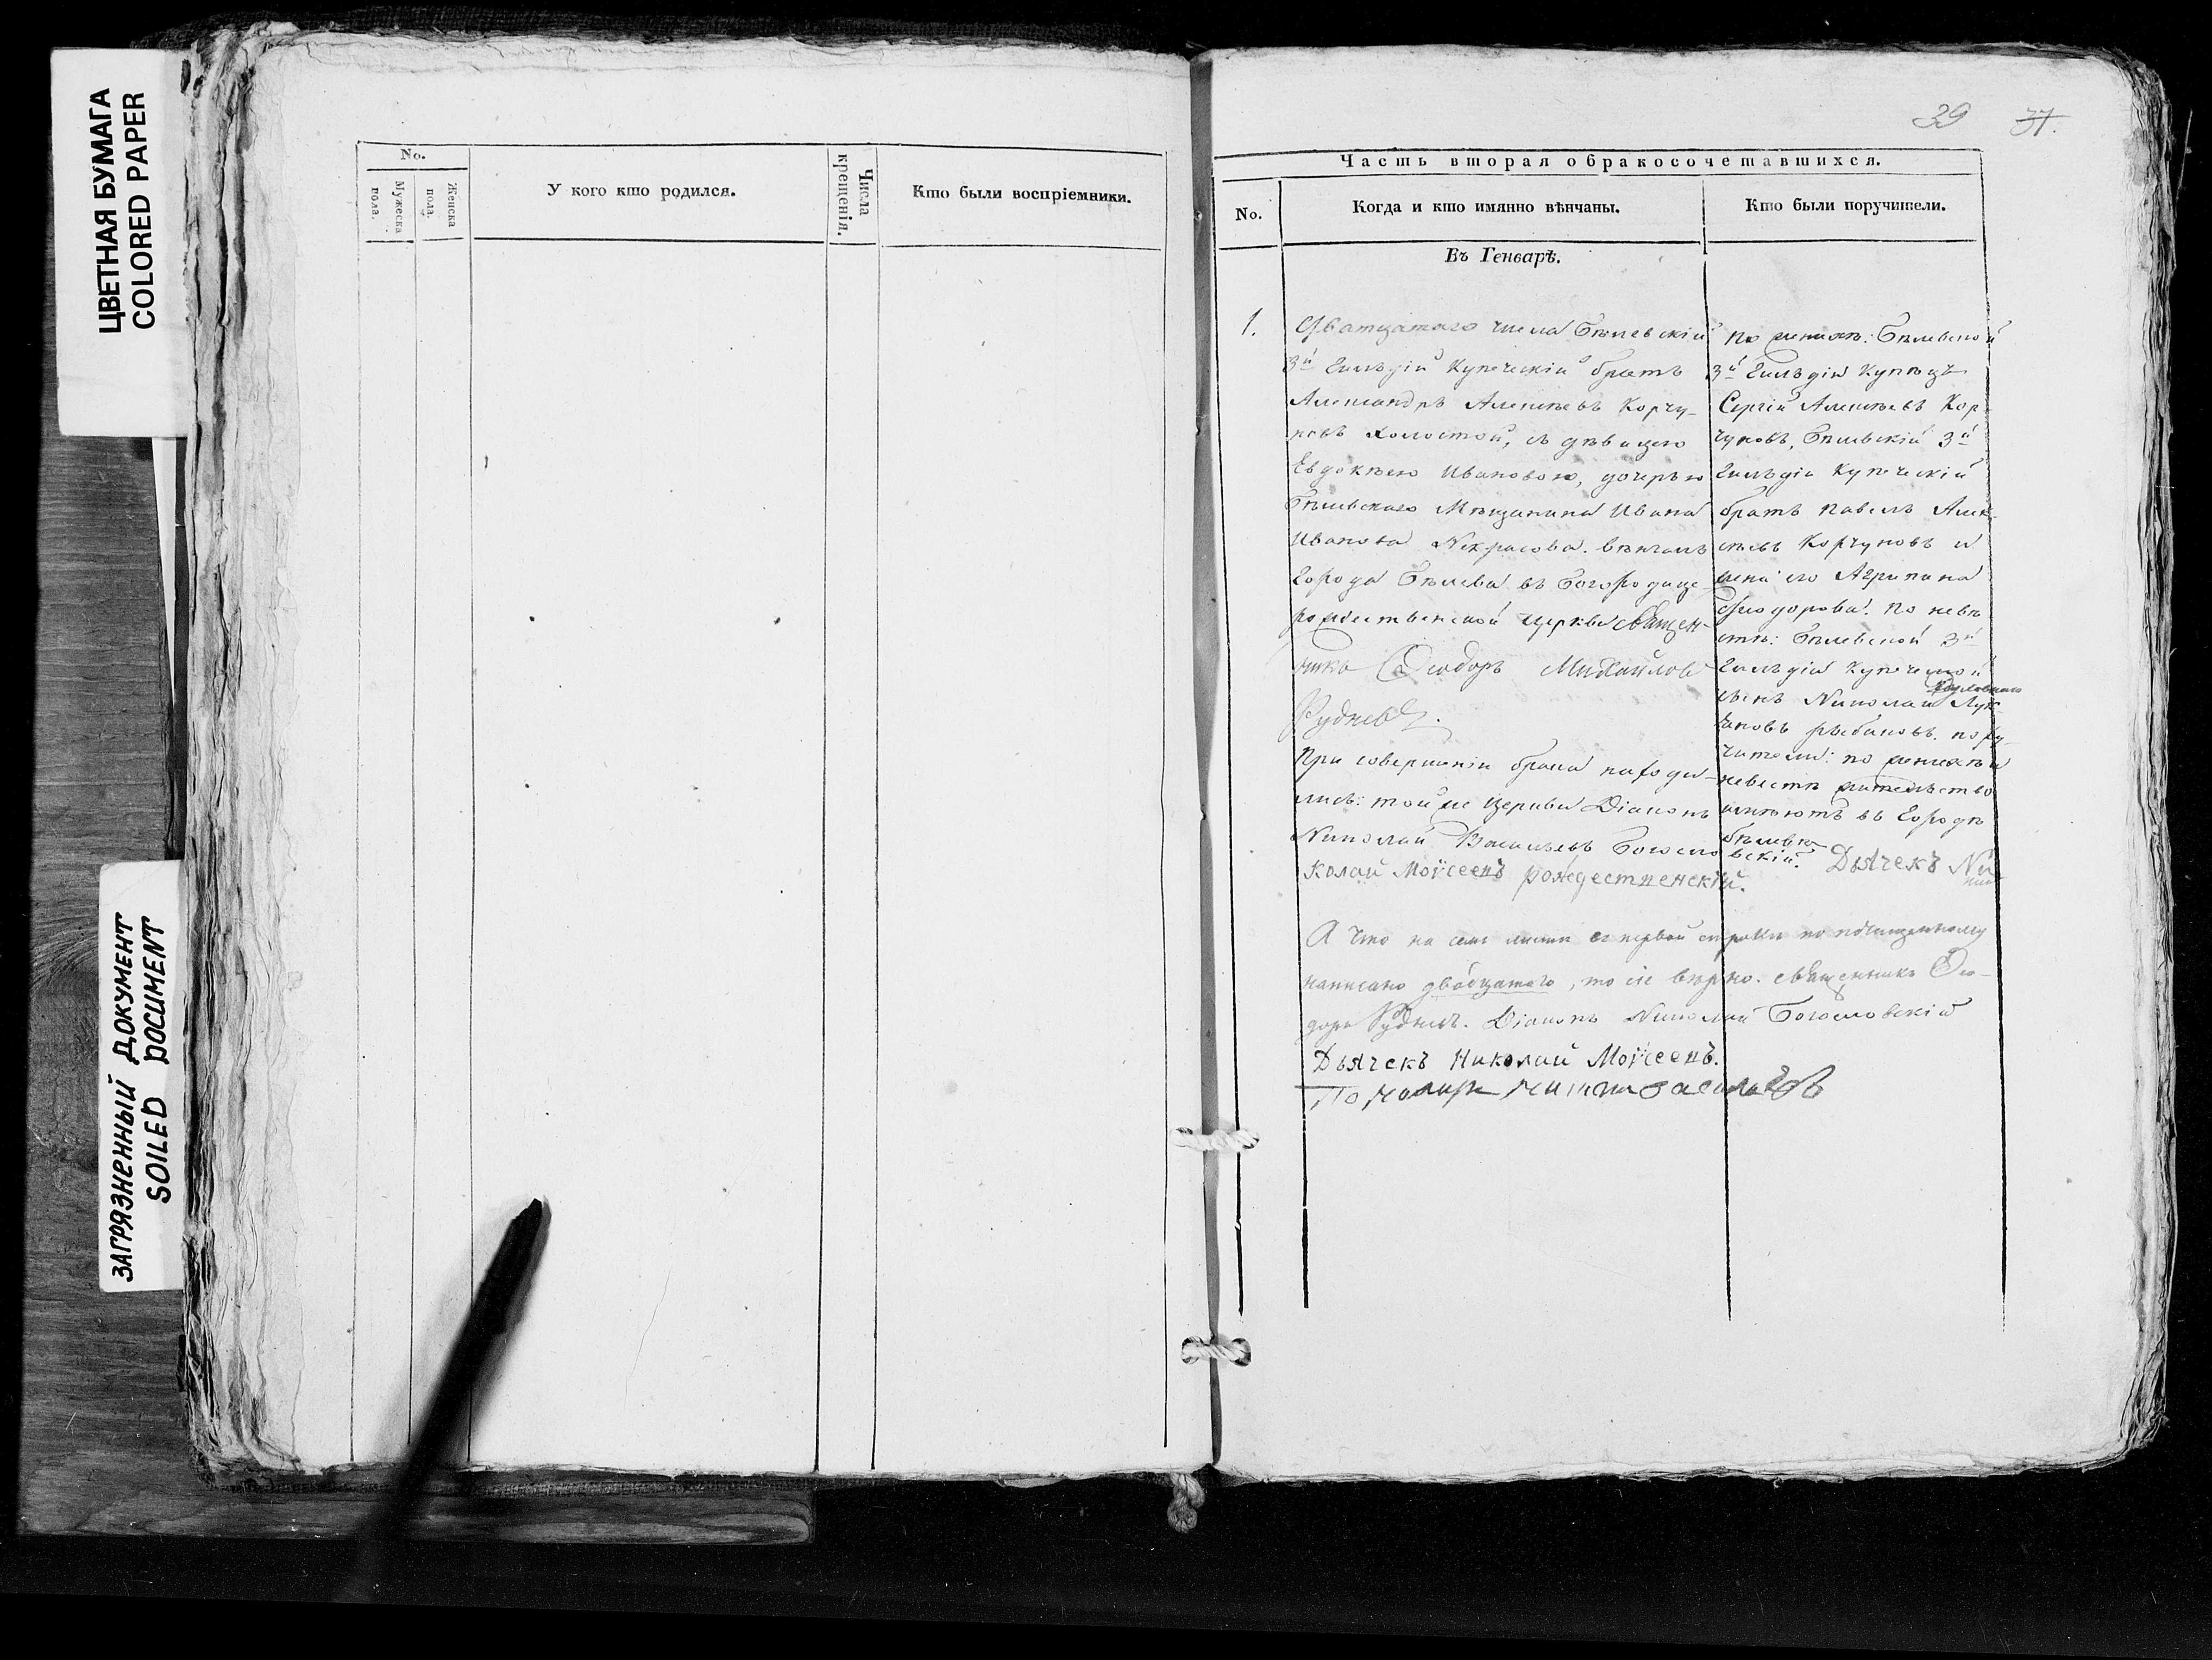 ЦВЕТНАЯ БУМАГА
COLORED PAPER
ЗАГРЯЗНЕННЫЙ ДОКУМЕНТ
SOILED DOCUMENT
No.
Мужеска пола.
Женска пола.
У кого кто родился.
Числа крещенія.
Кто были воспріемники.
39 37.
Часть вторая обракосочетавшихся.
No.
Когда и кто имянно вѣнчаны.
Кто были поручители.
Въ Генварѣ.
1.
Дватцатаго числа Бѣлевскій
3й Гильдіи Купеческій братъ
Александръ Алексѣевъ Корчу-
новъ холостой, съ дѣвицею
Евдокѣею Ивановою, дочерью
Бѣлевскаго Мѣщанина Ивана
Иванова Некрасова. вѣнчалъ
Города Бѣлева въ Богородице-
рождественской церкви священ-
никъ Ѳеодоръ Михайловъ
Рудневъ.
При совершеніи брака находи-
лись: той же Церкви Діаконъ
Николай Васильевъ Богословскій. Дьячекъ Ни-
колай Моѵсеевъ рождественскій.
По женихѣ: Бѣлевской
3й Гильдіи Купецъ
Сергій Алексѣевъ Кор-
чуновъ, Бѣлевскій 3й
Гильдіи Купеческій
братъ Павелъ Алек-
сѣевъ Корчуновъ и
жена его Агрипина
Ѳеодорова. По невѣ-
стѣ: Бѣлевской 3й
Гильдіи Купеческой
сынъ Николай Лук-
яновъ рыбаковъ. пору-
чители: по женихѣ и
невестѣ жительство
имѣютъ въ Городѣ
Бѣлевѣ
А что на семъ листѣ въ первой строкѣ по подчищенному
написано двадцатаго, то сіе вѣрно. священникъ Ѳео-
доръ Рудневъ. Діаконъ Николай Богословскій
Дьячекъ Николай Моѵсеевъ.
Пономарь